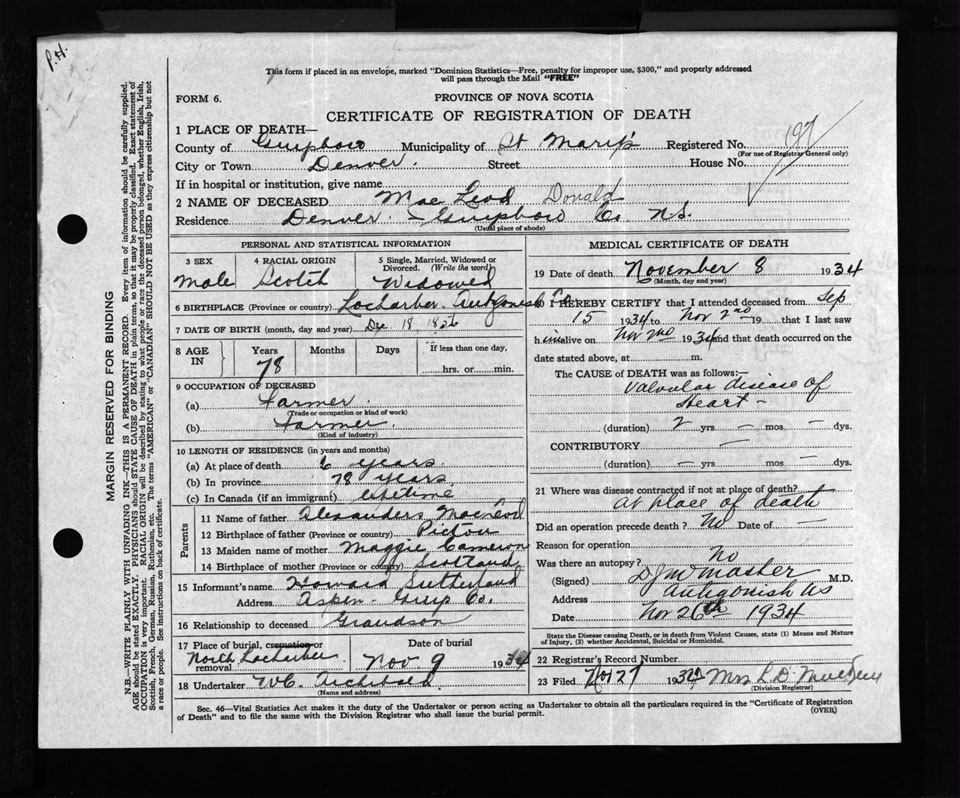 P.H.
This form if placed in an envelope, marked "Dominion Statistics—Free, penalty for improper use, $300," and properly addressed
will pass through the Mail "FREE"
FORM 6.
PROVINCE OF NOVA SCOTIA
CERTIFICATE OF REGISTRATION OF DEATH
197
1 PLACE OF DEATH—
County of Municipality of St Mary's Registered No.
(For use of Registrar General only)
City or Town Denver. Street House No.
If in hospital or institution, give name
2 NAME OF DECEASED Mac Leod Donald
Residence Denver Co. N.S.
(Usual place of abode)
PERSONAL AND STATISTICAL INFORMATION
3 SEX 4 RACIAL ORIGIN 5 Single, Married, Widowed or Divorced. (Write the word)
Male Scotch Widowed
6 BIRTHPLACE (Province or country) Lochaber. Antigonish Co
7 DATE OF BIRTH (month, day and year) Dec 18
8 AGE IN Years Months Days If less than one day,
78 hrs. or min.
9 OCCUPATION OF DECEASED
(a) Farmer
(Trade or occupation or kind of work)
(b) Farmer
(Kind of industry)
10 LENGTH OF RESIDENCE (in years and months)
(a) At place of death 6 years
(b) In province 78 years
(c) In Canada (if an immigrant) Lifetime
Parents
11 Name of father Alexander MacLeod
12 Birthplace of father (Province or country) Pictou
13 Maiden name of mother Maggie Cameron
14 Birthplace of mother (Province or country) Scotland
15 Informant's name Howard Sutherland
Address Aspen Co.
16 Relationship to deceased Grandson
17 Place of burial, cremation or removal Date of burial
North Lochaber Nov 9 1934
18 Undertaker W.C. Archibald
(Name and address)
MEDICAL CERTIFICATE OF DEATH
19 Date of death November 8 1934
(Month, day and year)
20 I HEREBY CERTIFY that I attended deceased from Sep
15 1934 to Nov 2nd 19 that I last saw
him alive on Nov 2nd 1934 and that death occurred on the
date stated above, at m.
The CAUSE of DEATH was as follows:—
Valvular disease of
Heart —
(duration) 2 yrs — mos — dys.
CONTRIBUTORY —
(duration) — yrs — mos. — dys.
21 Where was disease contracted if not at place of death?
At place of death
Did an operation precede death? No Date of —
Reason for operation
Was there an autopsy? No
(Signed) McMaster M.D.
Address Antigonish NS
Date Nov 26th 1934
State the Disease causing Death, or in death from Violent Causes, state (1) Means and Nature
of Injury, (2) whether Accidental, Suicidal or Homicidal.
22 Registrar's Record Number
23 Filed Nov 27 1934 Mrs L.D.
(Division Registrar)
Sec. 46—Vital Statistics Act makes it the duty of the Undertaker or person acting as Undertaker to obtain all the particulars required in the "Certificate of Registration
of Death" and to file the same with the Division Registrar who shall issue the burial permit.
(OVER)
MARGIN RESERVED FOR BINDING
N.B.—WRITE PLAINLY WITH UNFADING INK—THIS IS A PERMANENT RECORD. Every item of information should be carefully supplied.
AGE should be stated EXACTLY. PHYSICIANS should STATE CAUSE OF DEATH in plain terms, so that it may be properly classified. Exact statement of
OCCUPATION is very important. RACIAL ORIGIN will be described by stating to what people or race the deceased person belonged, whether English, Irish,
Scottish, French, German, Russian, Ruthenian, etc. The terms "AMERICAN" or "CANADIAN" SHOULD NOT BE USED as they express citizenship but not
a race or people. See instructions on back of certificate.